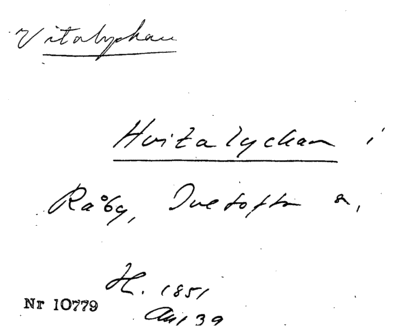 Vitalyckan
Hvitalyckan i
Råby, Tvetofta s.
H. 1851
Nr 10779